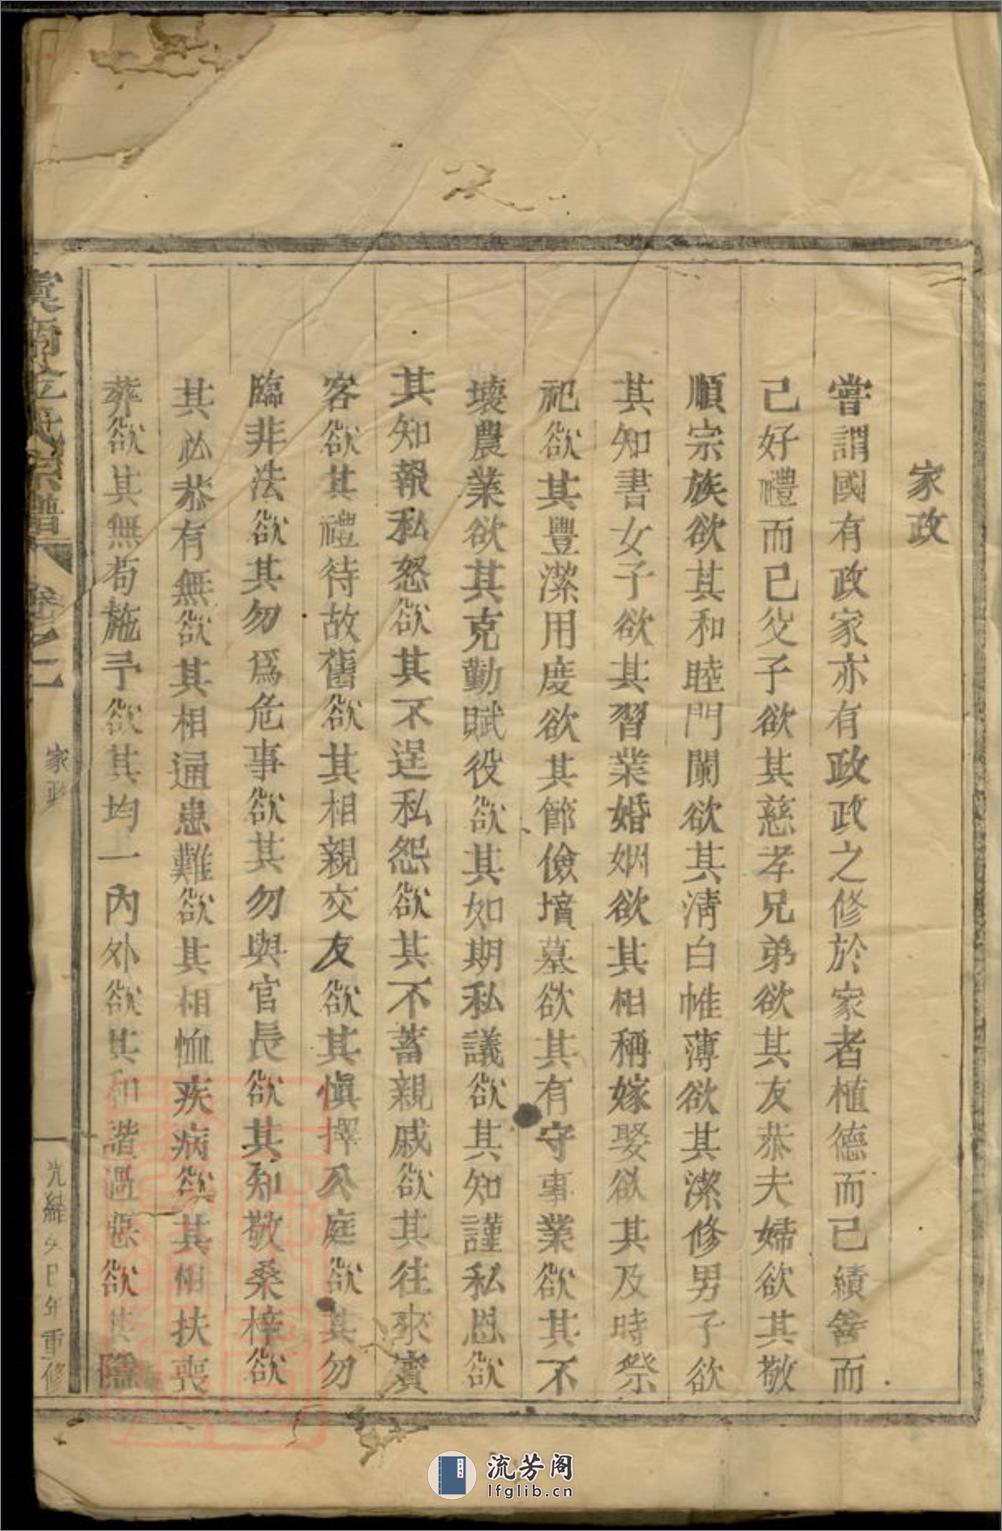 家政
嘗謂國有政家亦有政政之修於家者植德而已績善而
己好禮而已父子欲其慈孝兄弟欲其友恭夫婦欲其敬
順宗族欲其和睦門闌欲其淸白帷薄欲其潔修男子欲
其知書女子欲其習業婚姻欲其相稱嫁娶欲其及時祭
祀欲其豐潔用度欲其節儉墳墓欲其有守事業欲其不
壞農業欲其克勤賦役欲其如期私議欲其知謹私恩欲
其知報私怒欲其不逞私怨欲其不蓄親戚欲其往來賓
客欲其禮待故舊欲其相親交友欲其慎擇公庭欲其勿
臨非法欲其勿爲危事欲其勿與官長欲其知敬桑梓欲
其必恭有無欲其相通患難欲其相恤疾病欲其相扶喪
葬欲其無苟施予欲其均一內外欲其和諧過惡欲其隱
氏宗譜
卷之一
家政
光緒 年重修
流芳阁
lfglib.cn